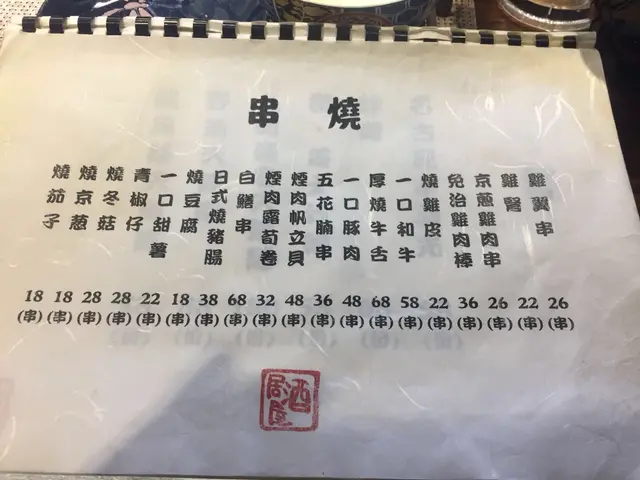 串燒
雞翼串
雞腎
京葱雞肉串
免治雞肉棒
燒雞皮
一口和牛
厚燒牛舌
一口豚肉
五花腩串
煙肉帆立貝
煙肉露荀卷
白鱔串
日式燒豬腸
燒豆腐
一口甜薯
青椒仔
燒冬菇
燒京葱
燒茄子
18 18 28 28 22 18 38 68 32 48 36 48 68 58 22 36 26 22 26
(串) (串) (串) (串) (串) (串) (串) (串) (串) (串) (串) (串) (串) (串) (串) (串) (串) (串) (串)
居酒屋